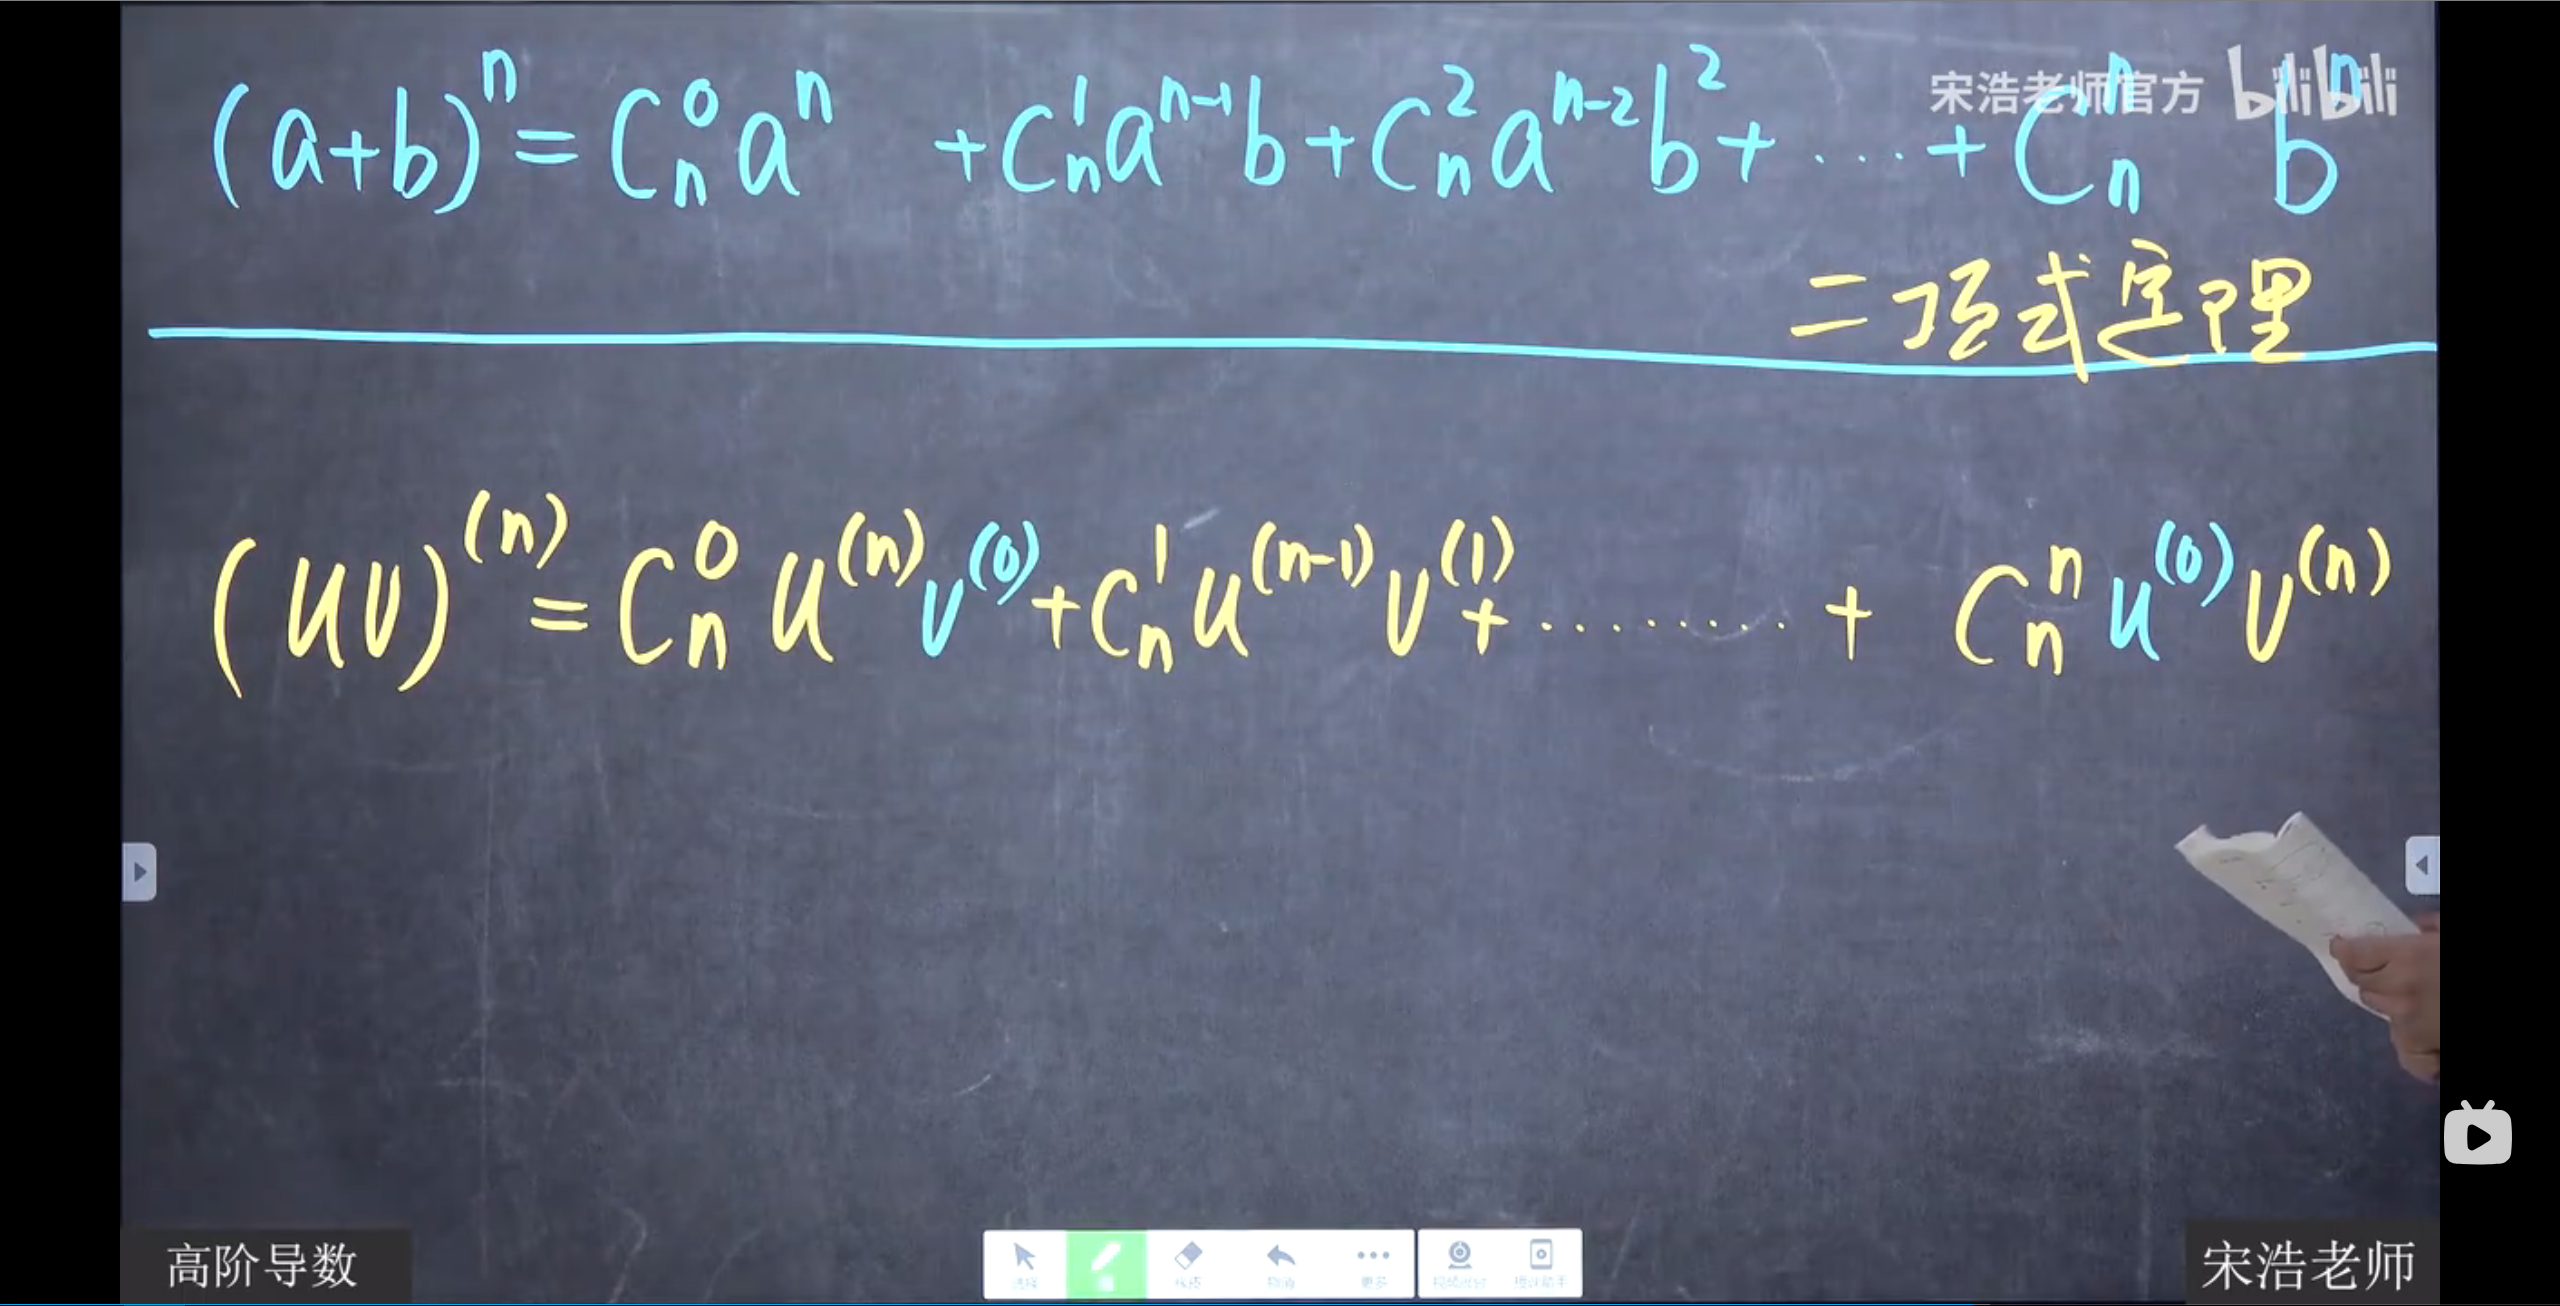 宋浩老师官方 bilibili
(a+b)^n = C_n^0 a^n + C_n^1 a^{n-1} b + C_n^2 a^{n-2} b^2 + ... + C_n^n b^n
二项式定理
(uv)^{(n)} = C_n^0 u^{(n)} v^{(0)} + C_n^1 u^{(n-1)} v^{(1)} + ........ + C_n^n u^{(0)} v^{(n)}
选择 更多
高阶导数
宋浩老师